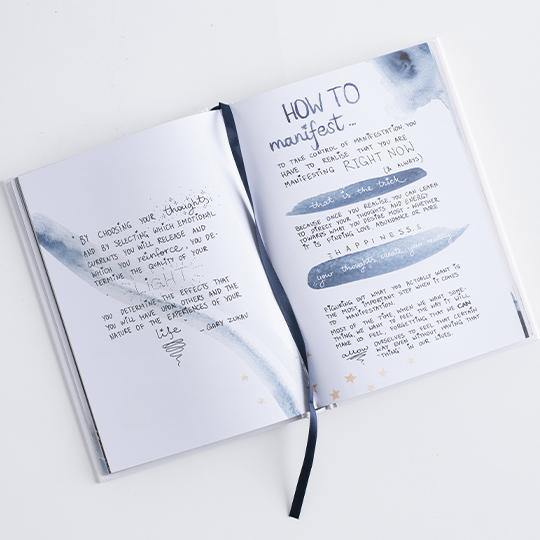 BY CHOOSING YOUR thoughts,
AND BY SELECTING WHICH EMOTIONAL
CURRENTS YOU WILL RELEASE AND
WHICH YOU reinforce, YOU DE-
TERMINE THE QUALITY OF YOUR
LIGHT.
YOU DETERMINE THE EFFECTS THAT
YOU WILL HAVE UPON OTHERS AND THE
NATURE OF THE EXPERIENCES OF YOUR
life
- GARY ZUKAV
HOW TO
manifest...
TO TAKE CONTROL OF MANIFESTATION, YOU
HAVE TO REALISE THAT YOU ARE
MANIFESTING RIGHT NOW
(& ALWAYS)
that is the trick
BECAUSE ONCE YOU REALISE, YOU CAN LEARN
TO DIRECT YOUR THOUGHTS AND ENERGY
TOWARDS WHAT YOU DESIRE MOST - WHETHER
IT IS FINDING LOVE, ABUNDANCE OR PURE
HAPPINESS.
your thoughts create your
FIGURING OUT WHAT YOU ACTUALLY WANT IS
THE MOST IMPORTANT STEP WHEN IT COMES
TO MANIFESTATION.
MOST OF THE TIME WHEN WE WANT SOME-
THING, WE WANT TO FEEL THE WAY IT WILL
MAKE US FEEL, FORGETTING THAT WE CAN
allow OURSELVES TO FEEL THAT CERTAIN
WAY EVEN WITHOUT HAVING THAT
-THING IN OUR LIVES.